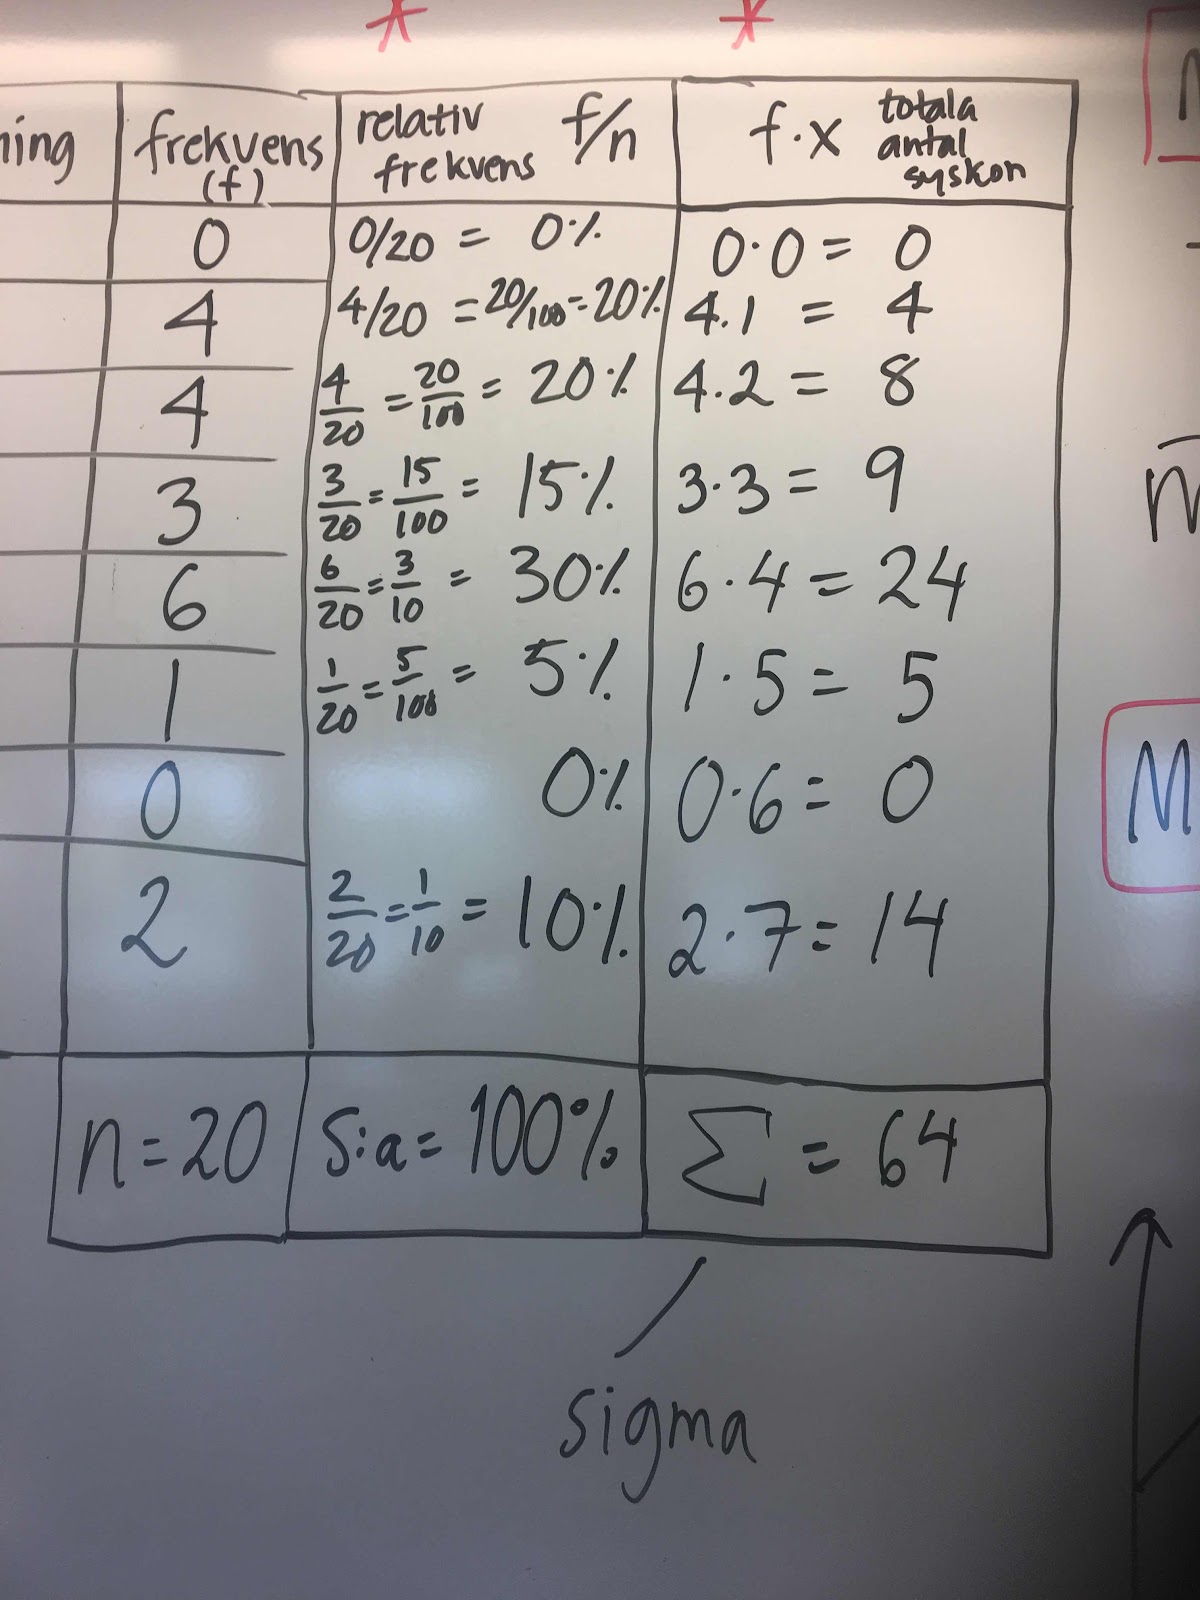 * *
frekvens (f) relativ frekvens f/n f·x totala antal syskon
0 0/20 = 0% 0·0 = 0
4 4/20 = 20/100 = 20% 4·1 = 4
4 4/20 = 20/100 = 20% 4·2 = 8
3 3/20 = 15/100 = 15% 3·3 = 9
6 6/20 = 3/10 = 30% 6·4 = 24
1 1/20 = 5/100 = 5% 1·5 = 5
0 0% 0·6 = 0
2 2/20 = 1/10 = 10% 2·7 = 14
n = 20 S:a = 100% Σ = 64
sigma